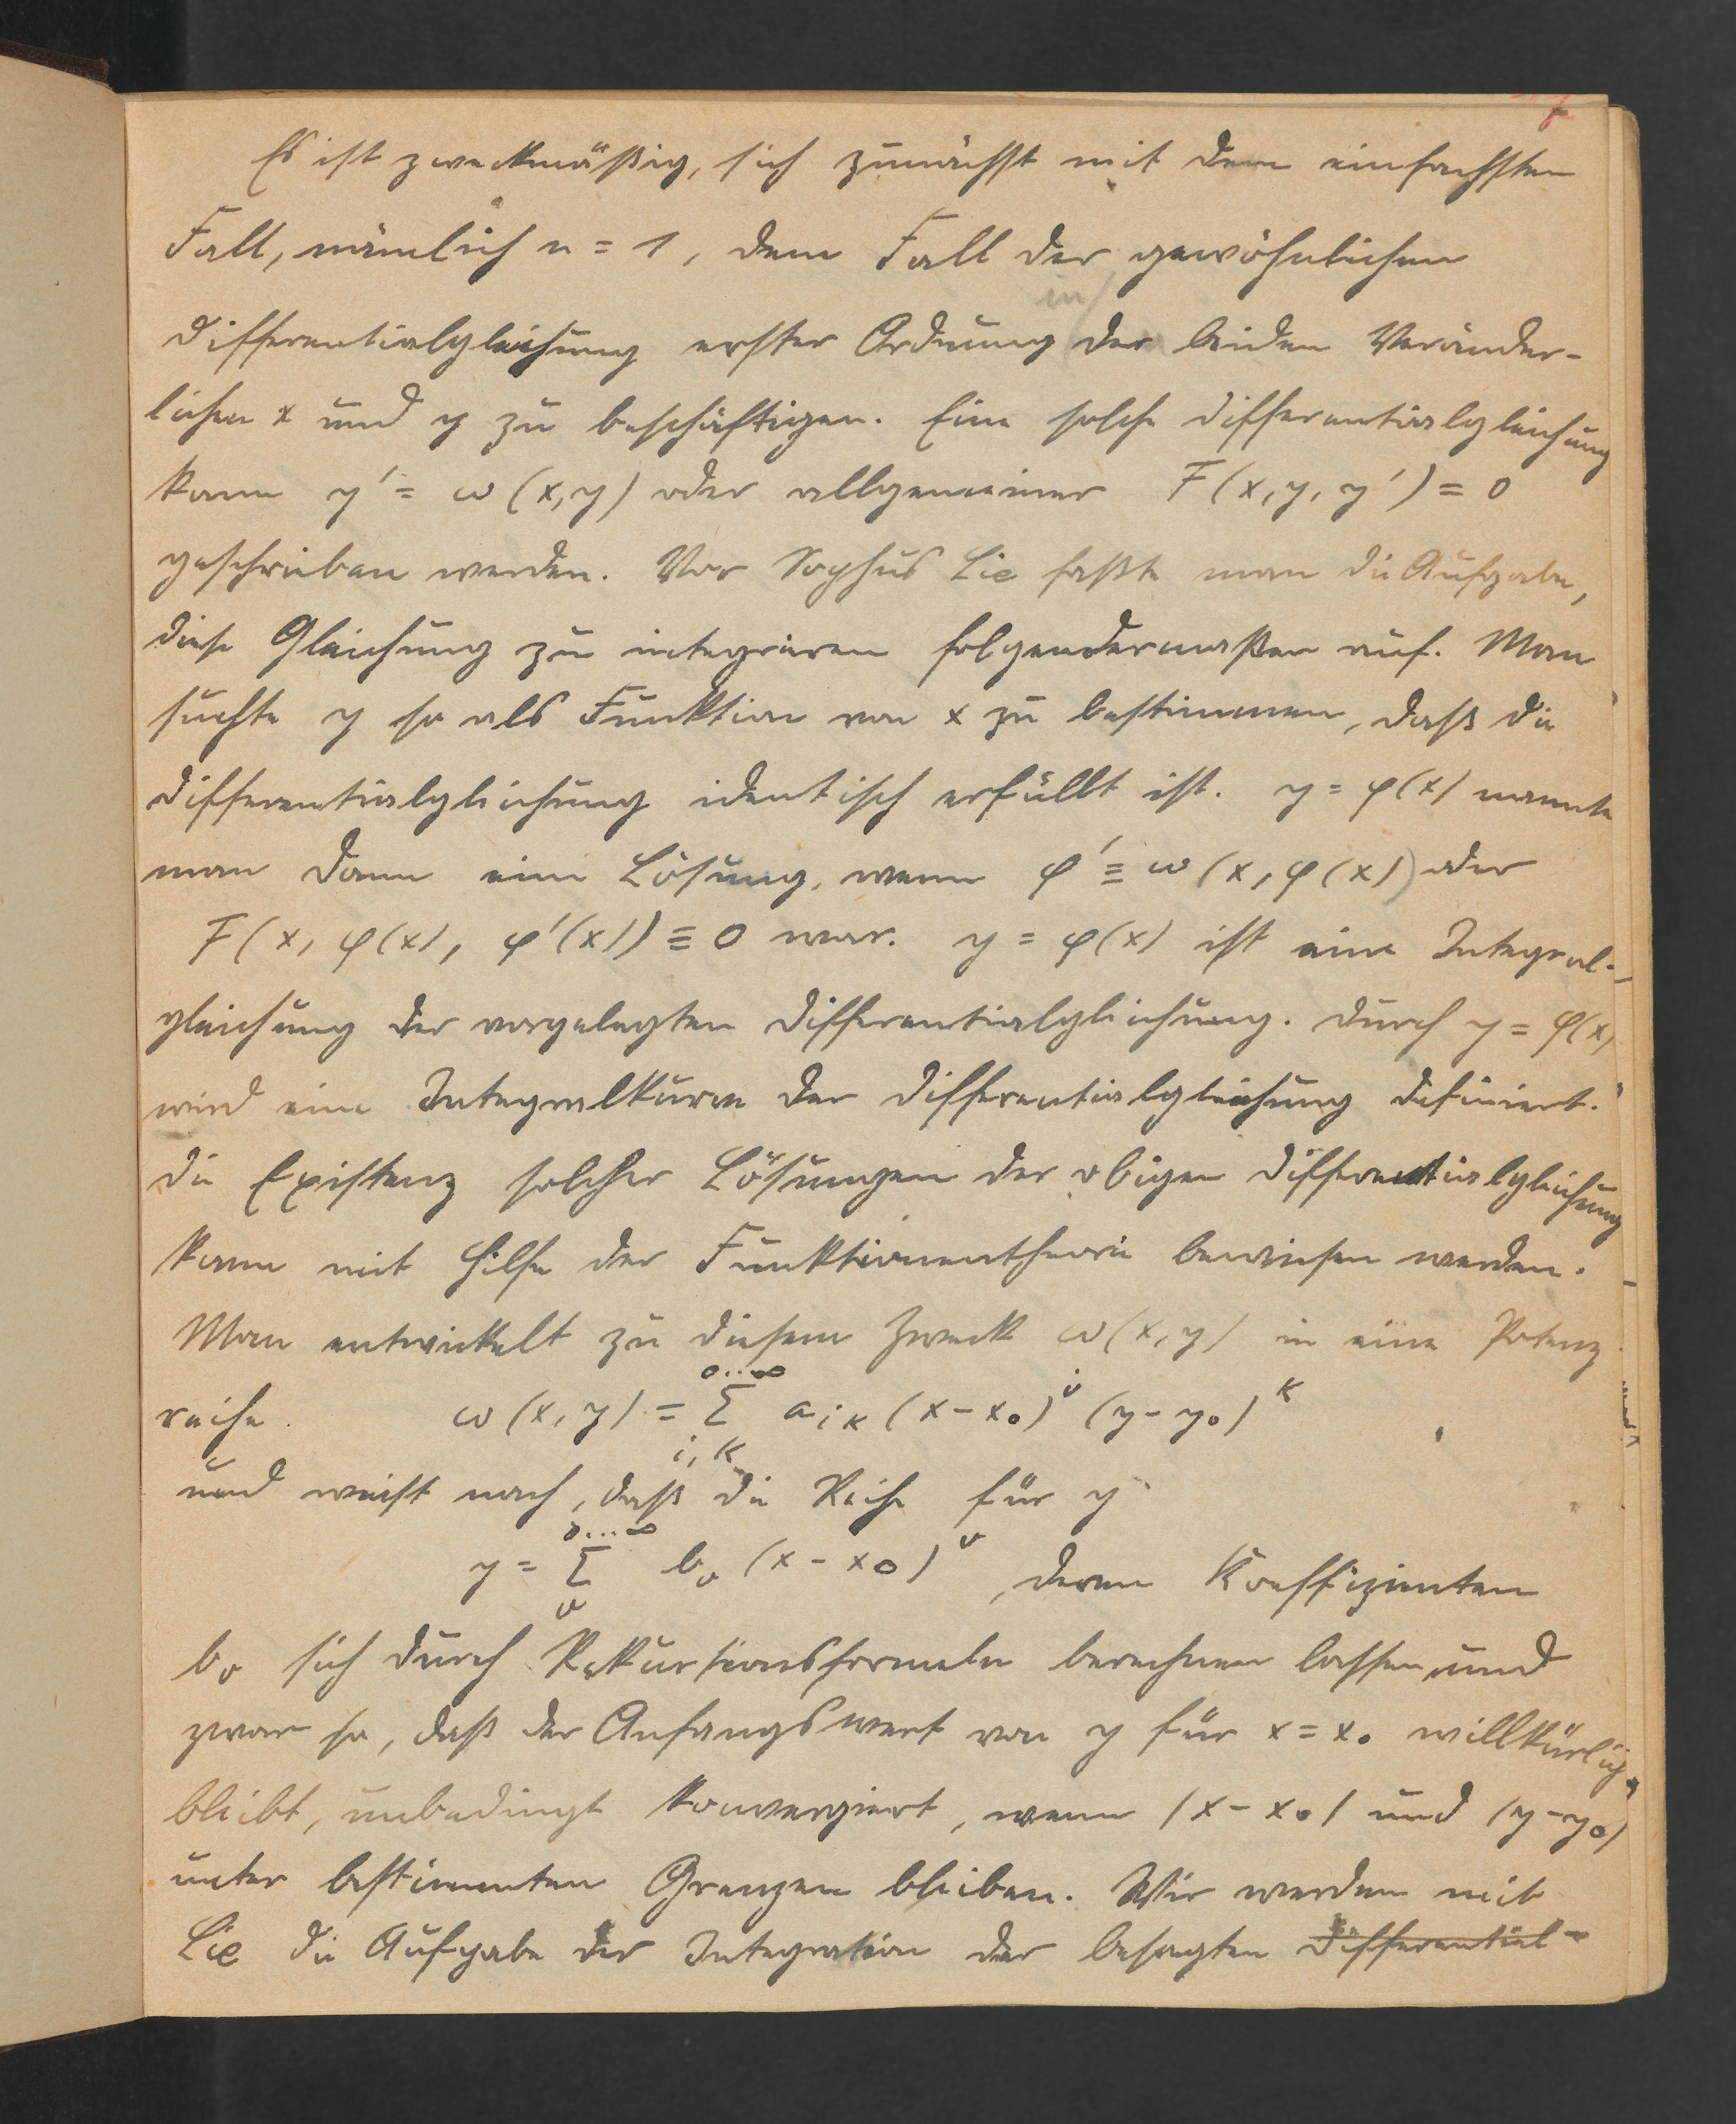 7
Es ist zweckmäßig, sich zunächst mit dem einfachsten
Fall, nämlich n = 1, dem Fall der gewöhnlichen
in
Differentialgleichung erster Ordnung der beiden Veränder-
lichen x und y zu beschäftigen. Eine solche Differentialgleichung
kann y' = ω (x, y) oder allgemeiner F (x, y, y') = 0
geschrieben werden. Vor Sophus Lie faßte man die Aufgabe,
diese Gleichung zu integrieren folgendermaßen auf. Man
suchte y so als Funktion von x zu bestimmen, daß die
Differentialgleichung identisch erfüllt ist. y = φ(x) nannte
man dann eine Lösung, wenn φ' ≡ ω (x, φ(x)) oder
F (x, φ(x), φ'(x)) ≡ 0 war. y = φ(x) ist eine Integral-
gleichung der vorgelegten Differentialgleichung. Durch y = φ(x)
wird eine Integralkurve der Differentialgleichung definiert.
Die Existenz solcher Lösungen der obigen Differentialgleichung
kann mit Hilfe der Funktionentheorie bewiesen werden.
Man entwickelt zu diesem Zweck ω (x, y) in eine Potenz
0...∞
reihe. ω (x, y) = Σ a_{ik} (x - x₀)^i (y - y₀)^k
i, k
und weist nach, daß die Reihe für y
0...∞
y = Σ b_ν (x - x₀)^ν, deren Koeffizienten
ν
b_ν sich durch Rekursionsformeln berechnen lassen und
zwar so, daß der Anfangswert von y für x = x₀ willkürlich
bleibt, unbedingt konvergiert, wenn |x - x₀| und |y - y₀|
unter bestimmten Grenzen bleiben. Wir werden mit
Lie die Aufgabe der Integration der besagten Differential-